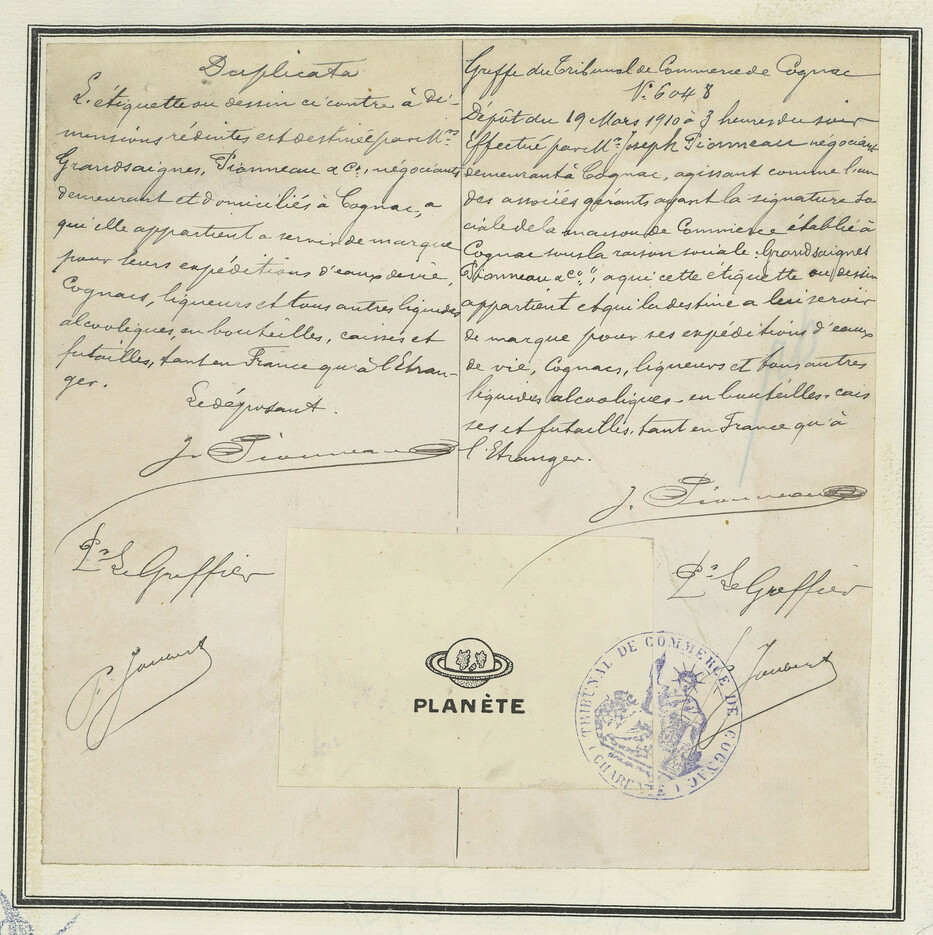 Duplicata
L'étiquette ou dessin ci contre à di-
mensions réduites est destinée par Mrs
Grandsaignes, Pionneau & Co, négociants
demeurant et domiciliés à Cognac, a
qui elle appartient a servir de marque
pour leurs expéditions d'eaux de vie,
Cognacs, liqueurs et tous autres liquides
alcooliques, en bouteilles, caisses et
futailles, tant en France qu'à l'Etran-
ger.
Le déposant.
J. Pionneau
Pr Le Greffier
P. Joubert
Greffe du Tribunal de Commerce de Cognac
No 6048
Dépôt du 19 Mars 1910 à 3 heures du soir
Effectué par Mr Joseph Pionneau négociant
demeurant à Cognac, agissant comme l'un
des associés gérants ayant la signature So-
ciale de la maison de Commerce établie à
Cognac sous la raison sociale: "Grandsaignes
Pionneau & Co", a qui cette etiquette ou dessin
appartient et qui la destine a lui servir
de marque pour ses expéditions d'eaux
de vie, Cognacs, liqueurs et tous autres
liquides alcooliques en bouteilles, cais
ses et futailles, tant en France qu'à
l'Etranger.
J. Pionneau
Pr Le Greffier
Joubert
PLANÈTE
TRIBUNAL DE COMMERCE DE COGNAC
(CHARENTE)